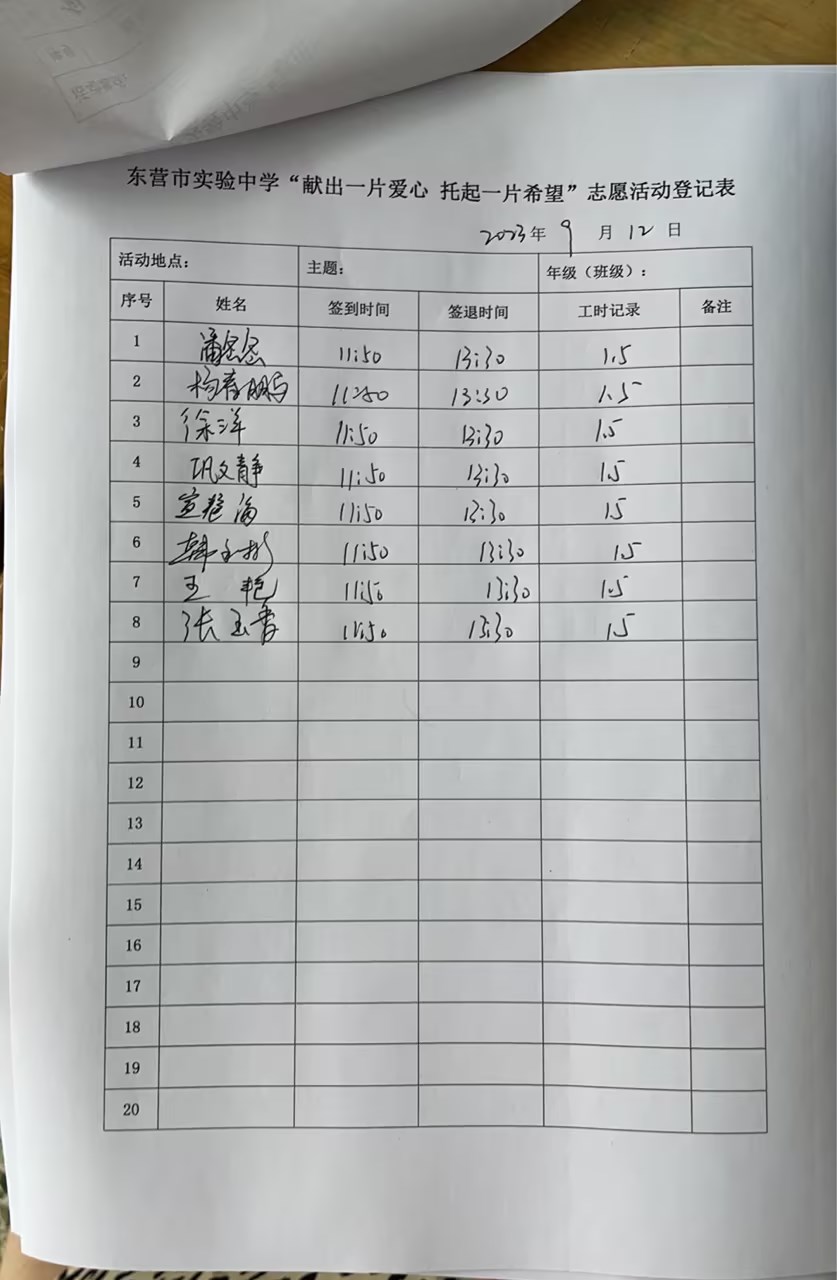 东营市实验中学“献出一片爱心 托起一片希望”志愿活动登记表
2023年 9 月 12 日
活动地点: 主题: 年级（班级）:
序号 姓名 签到时间 签退时间 工时记录 备注
1 11:50 13:30 1.5
2 杨春鹏 11:50 13:30 1.5
3 徐洋 11:50 13:30 1.5
4 巩文静 11:50 13:30 1.5
5 11:50 13:30 1.5
6 11:50 13:30 1.5
7 王艳 11:50 13:30 1.5
8 张玉香 11:50 13:30 1.5
9
10
11
12
13
14
15
16
17
18
19
20